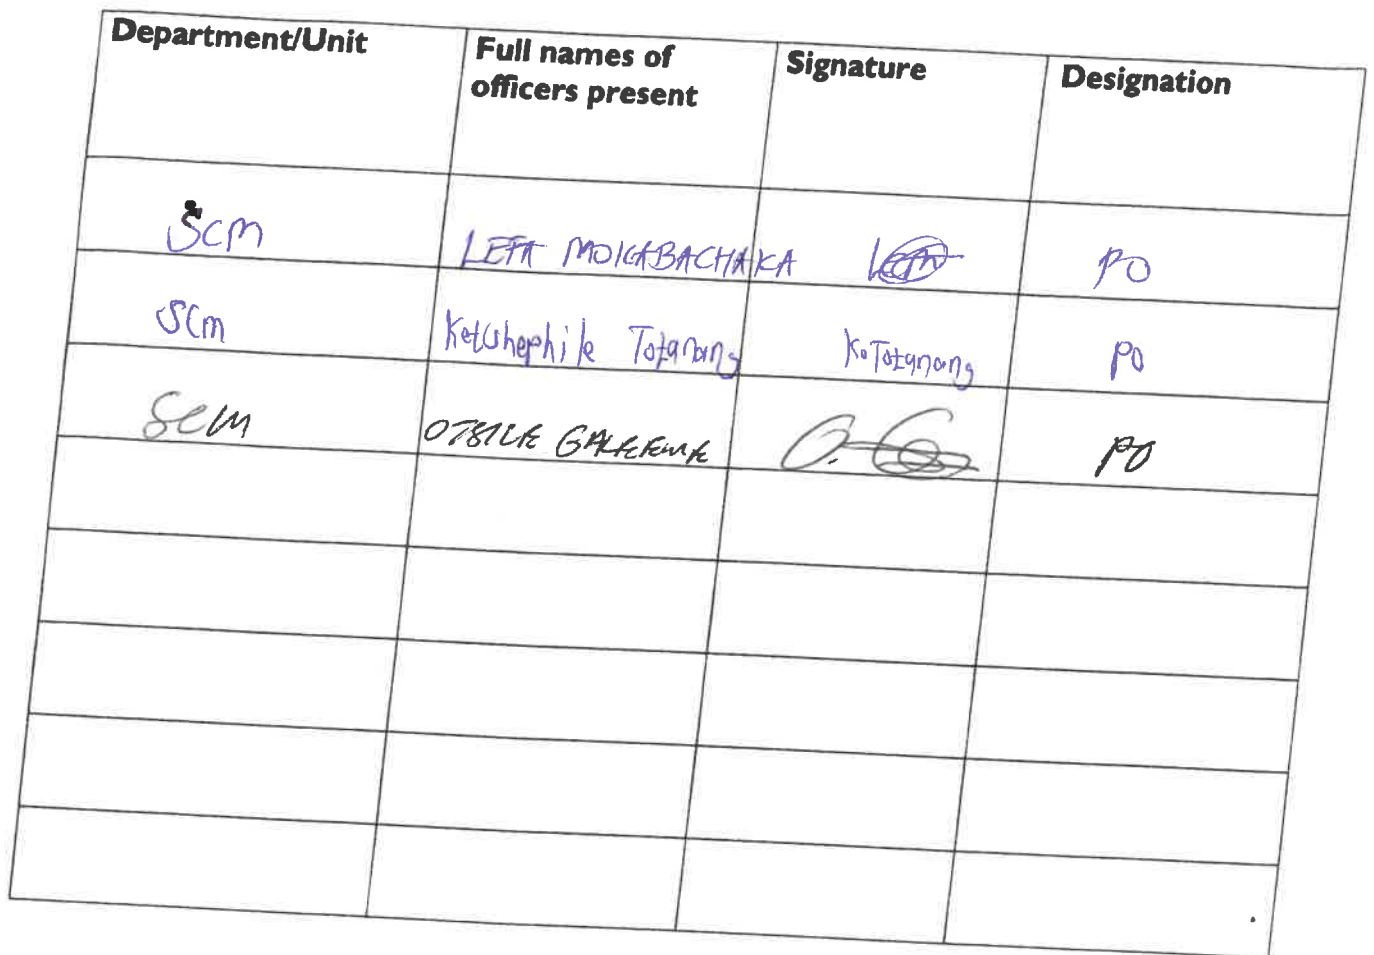 Department/Unit Full names of officers present Signature Designation
SCM LEFA MOKGABACHAKA PO
SCM Ketshephile Totanang K. Totanang PO
SCM OTSILE GALEEMWE PO